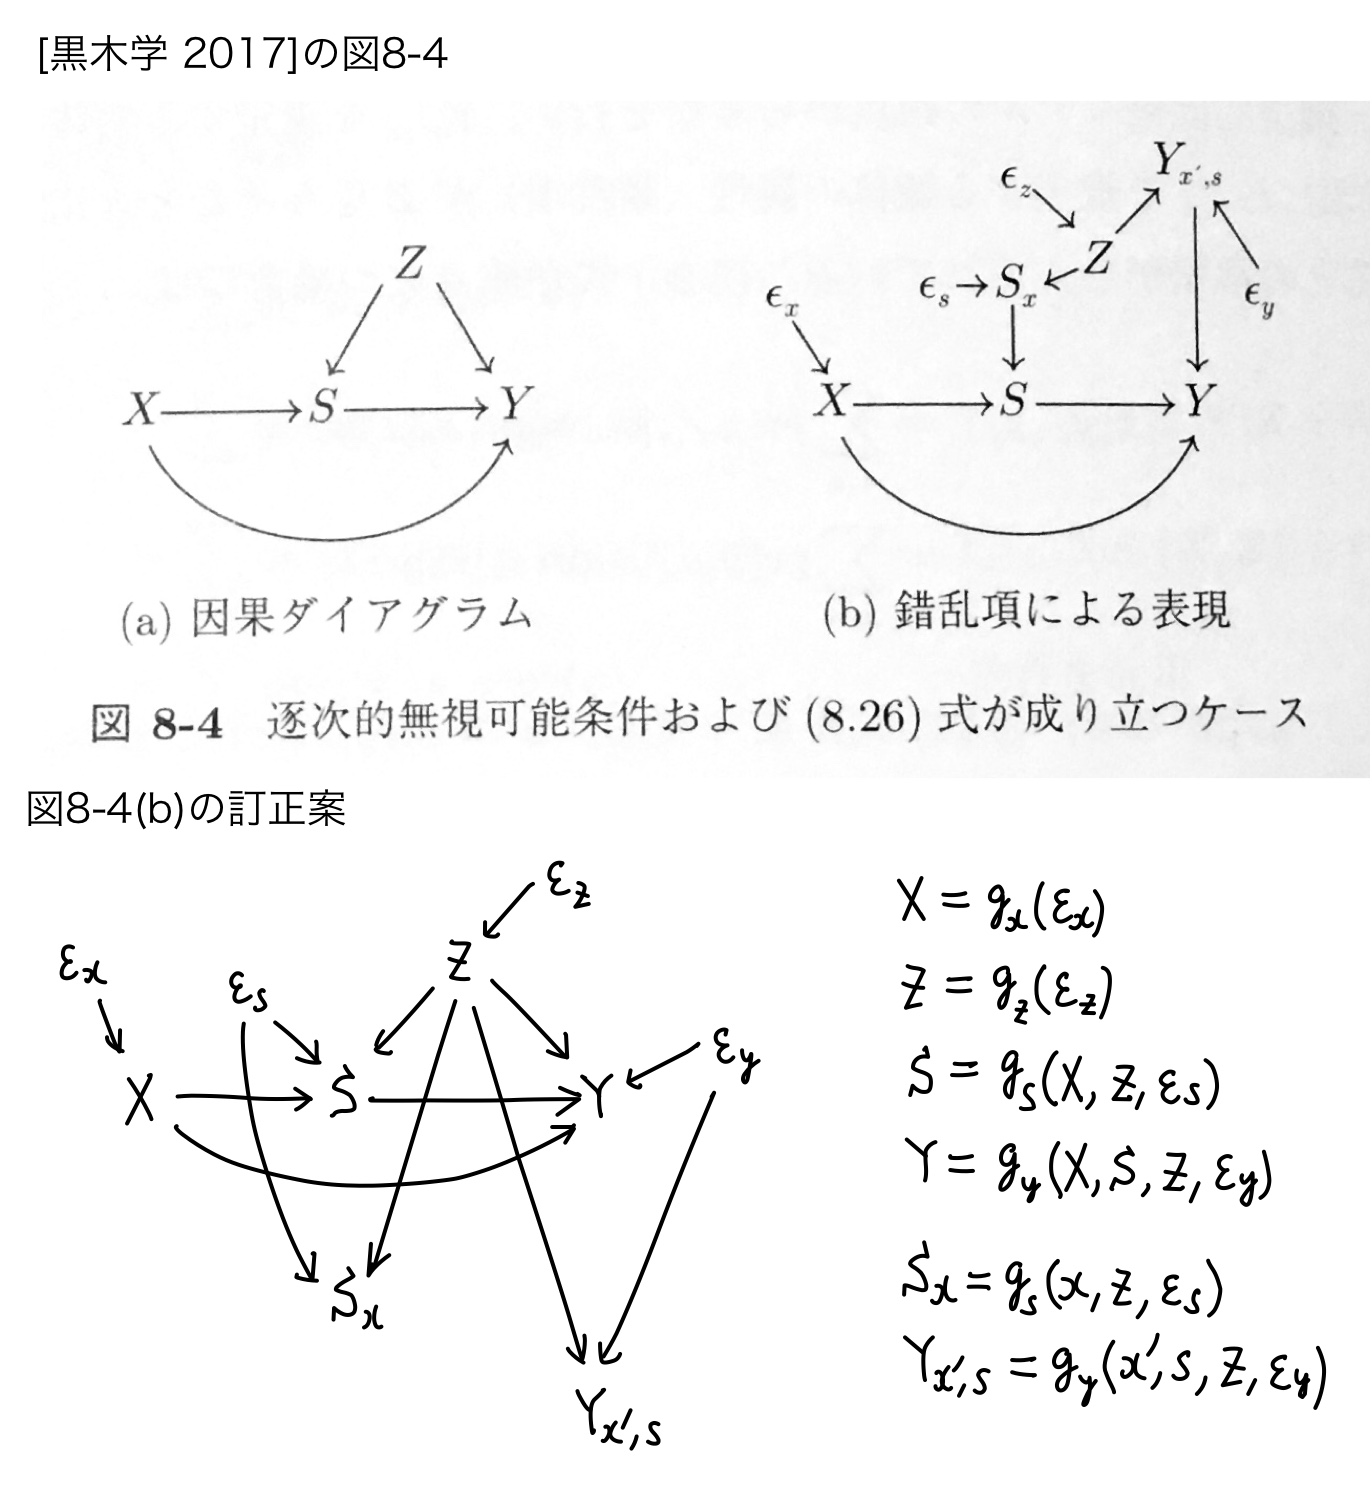 [黒木学 2017]の図8-4
Z
X S Y
(a) 因果ダイアグラム
Y_{x′,s}
ϵ_z
Z
ϵ_s S_x
ϵ_x ϵ_y
X S Y
(b) 錯乱項による表現
図 8-4 逐次的無視可能条件および (8.26) 式が成り立つケース
図8-4(b)の訂正案
ε_z
Z
ε_x ε_s
ε_y
X S Y
S_x
Y_{x′,s}
X = g_x(ε_x)
Z = g_z(ε_z)
S = g_s(X, Z, ε_s)
Y = g_y(X, S, Z, ε_y)
S_x = g_s(x, Z, ε_s)
Y_{x′,s} = g_y(x′, s, Z, ε_y)